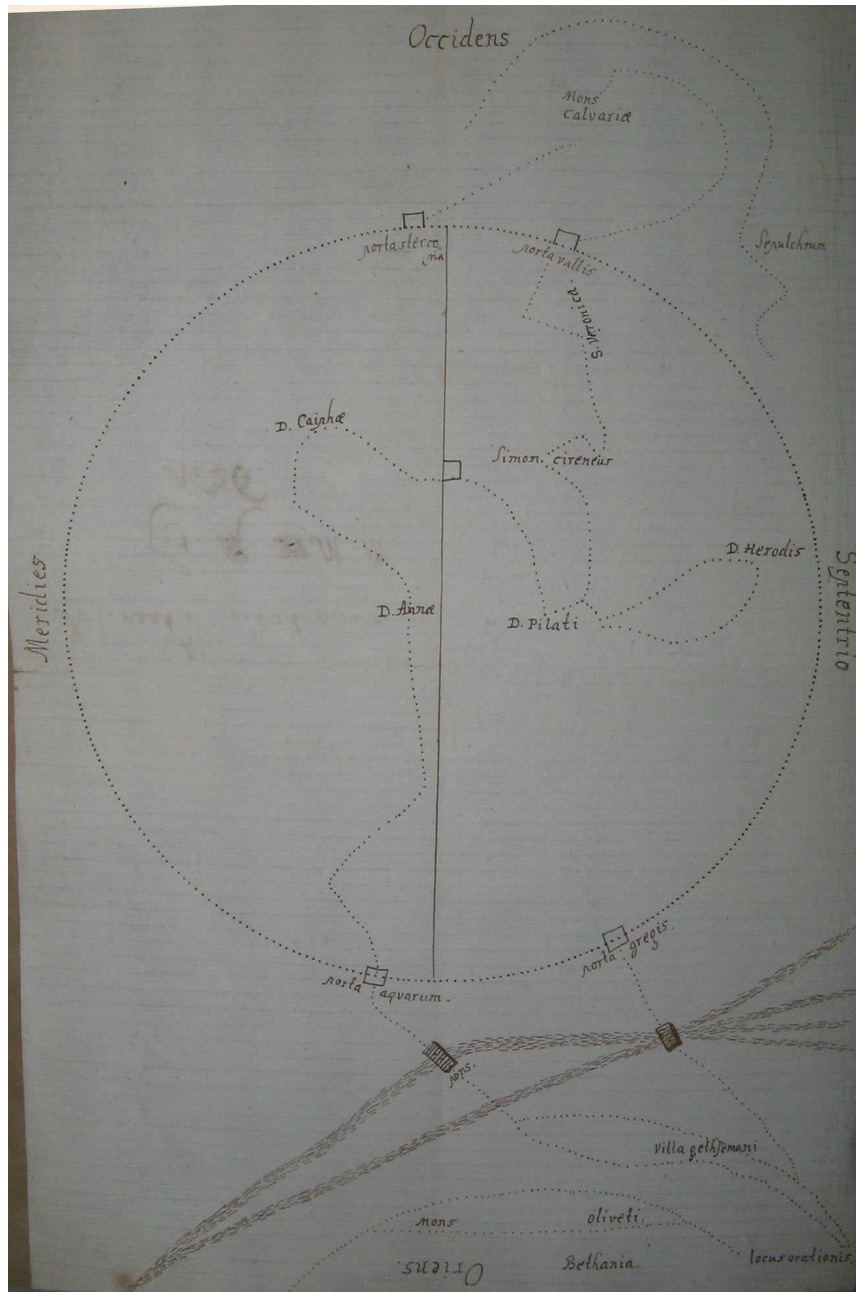 Occidens
Mons
Calvariæ
porta sterco
ria
porta vallis
Sepulchrum
S. Veronica
D. Caiphæ
Simon. cireneus
D. Herodis
Meridies
Septentrio
D. Annæ
D. Pilati
porta gregis
porta aquarum.
pons.
villa gethsemani
mons oliveti.
locus orationis.
Bethania.
Oriens.